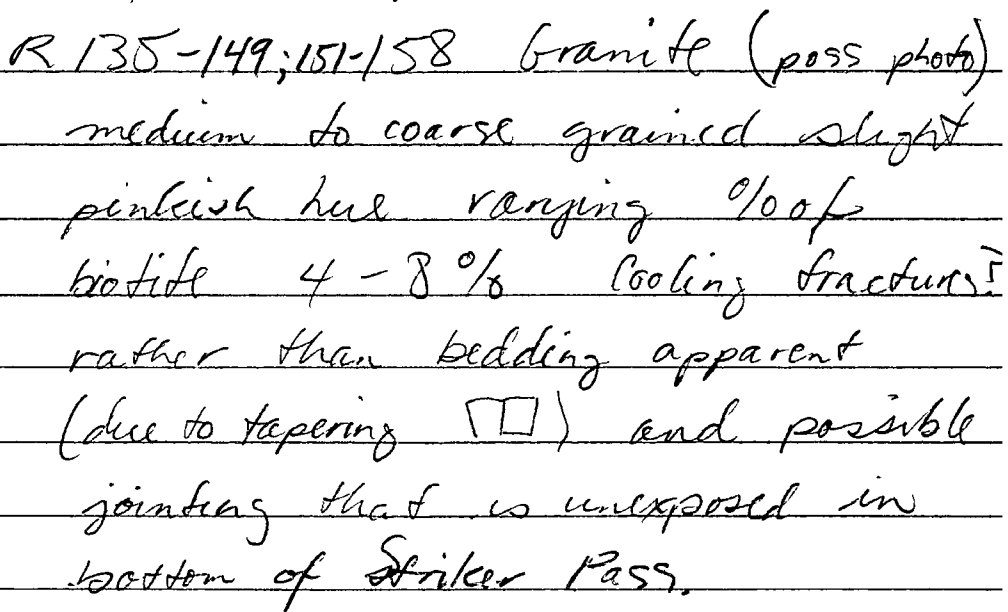 R 135-149;151-158 Granite (poss photo)
medium to coarse grained slight
pinkish hue ranging % of
biotite 4-8% Cooling fractures?
rather than bedding apparent
(due to tapering ) and possible
jointing that is unexposed in
bottom of Striker Pass.